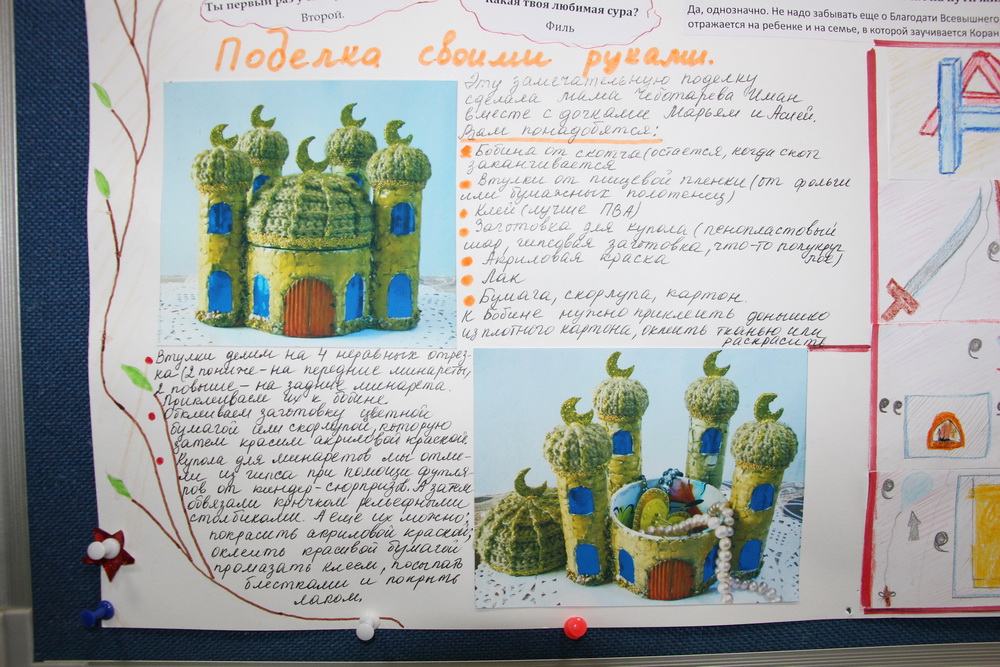 Ты первый раз у
Второй.
Какая твоя любимая сура?
Филь
Да, однозначно. Не надо забывать еще о Благодати Всевышнего
отражается на ребенке и на семье, в которой заучивается Коран
Поделка своими руками.
Эту замечательную поделку
сделала мама Чеботарева Иман
вместе с дочками Марьям и Асией.
Вам понадобятся:
Бобина от скотча (остается, когда скотч
заканчивается
Втулки от пищевой пленки (от фольги
или бумажных полотенец)
Клей (лучше ПВА)
Заготовка для купола (пенопластовый
шар, гипсовая заготовка, что-то полукруг
лое)
Акриловая краска
Лак
Бумага, скорлупа, картон.
К бобине нужно приклеить донышко
из плотного картона, оклеить тканью или
раскрасить
Втулки делим на 4 неравных отрез-
ка (2 пониже - на передние минареты,
2 повыше - на задние минарета.
Приклеиваем их к бобине
Обклеиваем заготовку цветной
бумагой или скорлупой, которую
затем красим акриловой краской.
Купола для минаретов мы отли-
ли из гипса при помощи футля-
ров от киндер-сюрпризов. А затем
обвязали крючком рельефными
столбиками. А еще их можно:
покрасить акриловой краской,
оклеить красивой бумагой
промазать клеем, посыпать
блестками и покрыть
лаком.